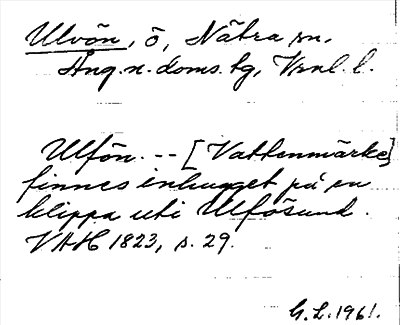 Ulvön, ö, Nätra sn,
Ång. n. doms. tg, Vrnl. l.
Ulfön. -- [Vattenmärke]
finnes inhugget på en
klippa uti Ulfösund.
VAH 1823, s. 29.
G. L. 1961.